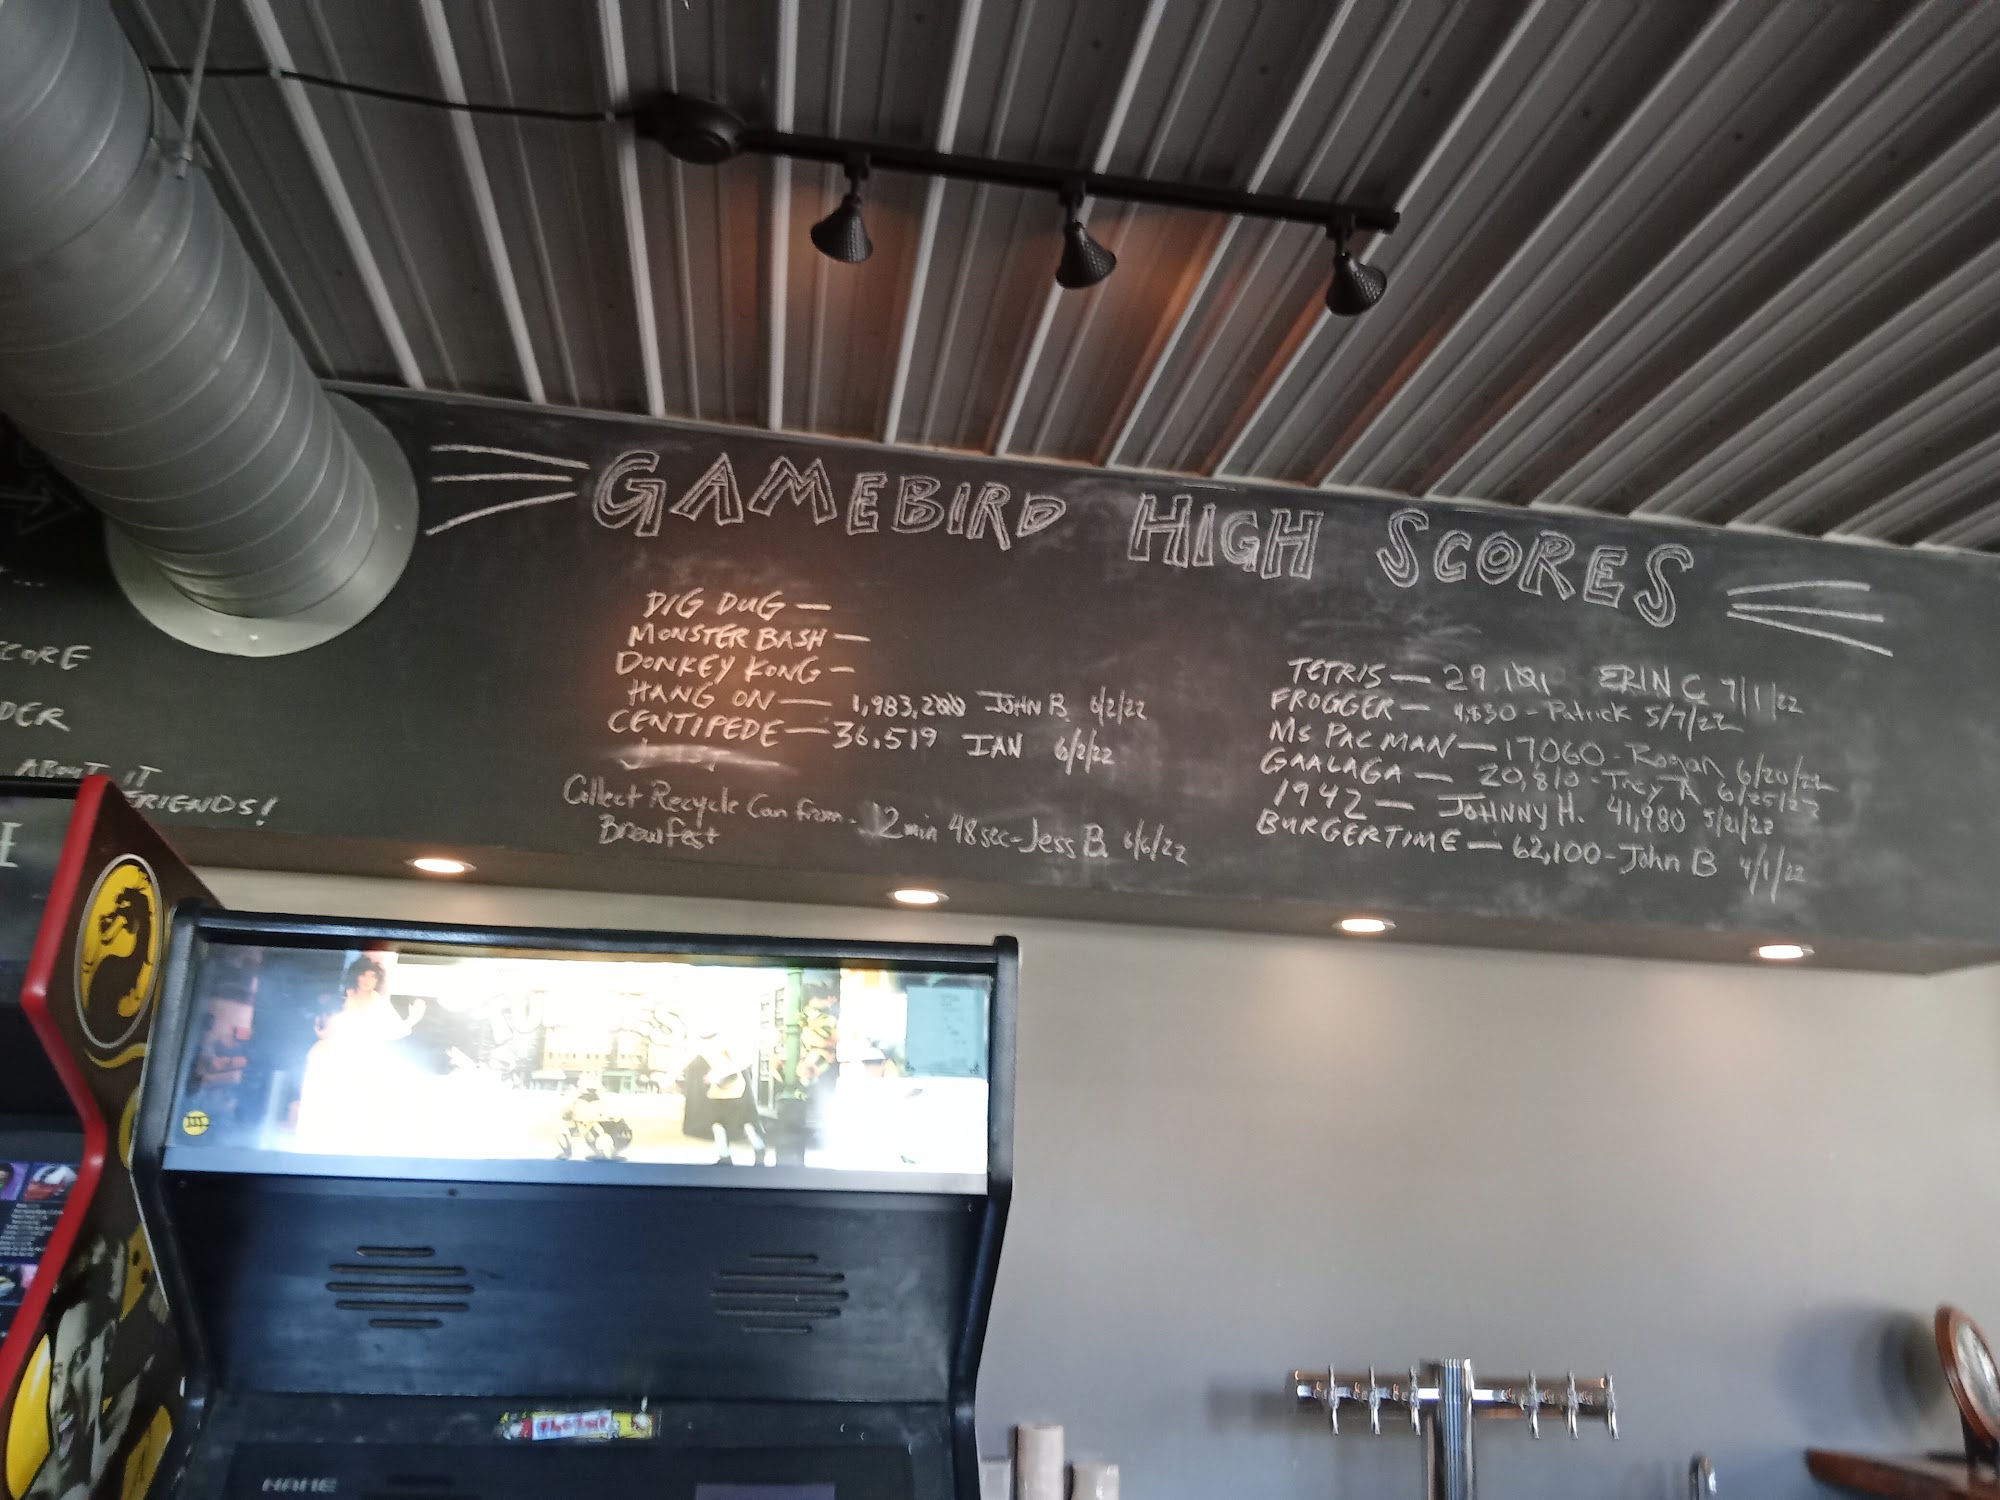 GAMEBIRD HIGH SCORES
DIG DUG —
MONSTER BASH —
DONKEY KONG —
HANG ON — 1,983,200 JOHN B. 6/2/22
CENTIPEDE — 36,519 IAN 6/2/22
Collect Recycle Can from - 12min 48sec - Jess B. 6/6/22
Brewfest
TETRIS — ERIN C 7/1/22
FROGGER — 4,830 - Patrick 5/7/22
MS PAC MAN — 17060 - Rogan 6/20/22
GAALAGA — 20,810 - Trey A 6/25/22
1942 — JOHNNY H. 41,980 5/21/22
BURGERTIME — 62,100 - John B 4/1/22
CORE
DER
ABOUT IT
FRIENDS!
NAME